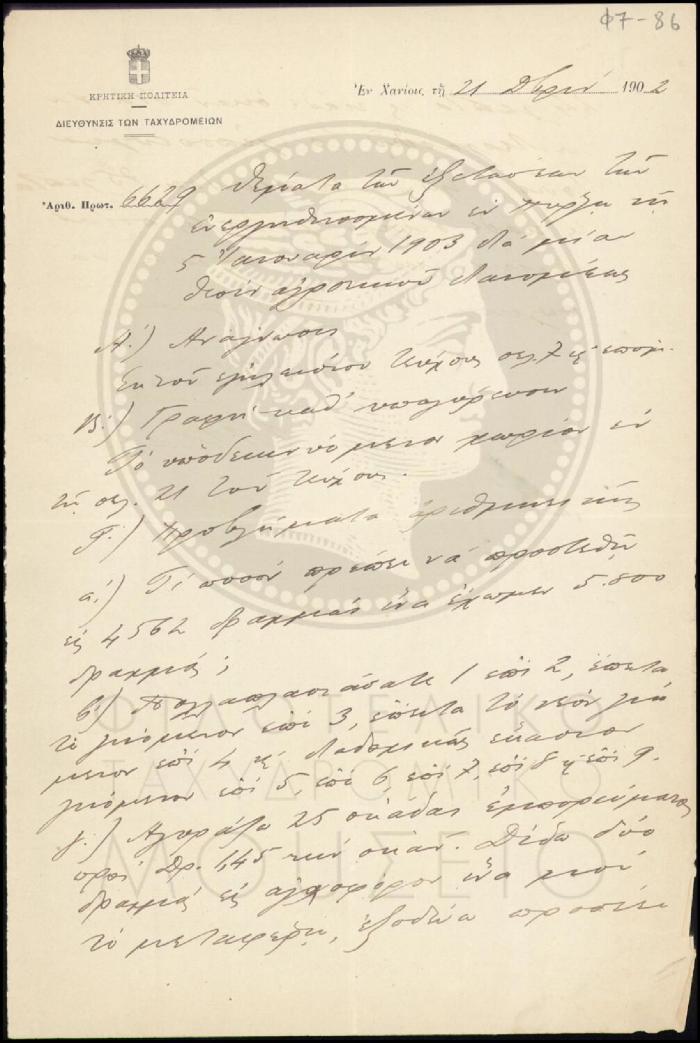 Φ7-86
ΚΡΗΤΙΚΗ ΠΟΛΙΤΕΙΑ
ΔΙΕΥΘΥΝΣΙΣ ΤΩΝ ΤΑΧΥΔΡΟΜΕΙΩΝ
Ἐν Χανίοις τῇ 21 Δβρίου 1902
Ἀριθ. Πρωτ. 6629
Θέματα τῶν ἐξετάσεων τῶν
ἐνεργηθησομένων ἐν τῇ
5 Ἰανουαρίου 1903 διὰ μίαν
θέσιν ἀγροτικοῦ διανομέως
Α΄.) Ἀνάγνωσις
Ἐκ τοῦ τεύχους σελ. 7 καὶ ἑπομ.
Β΄.) Γραφὴ καθ' ὑπαγόρευσιν
Τὸ ὑποδεικνυόμενον χωρίον ἐν
τῇ σελ. 21 τοῦ τεύχους.
Γ΄.) Προβλήματα ἀριθμητικῆς
α΄.) Τί ποσὸν πρέπει νὰ προστεθῇ
εἰς 4562 δραχμὰς ἵνα ἔχωμεν 5.800
δραχμάς;
β΄) Πολλαπλασιάσατε 1 ἐπὶ 2, ἔπειτα
τὸ γινόμενον ἐπὶ 3, ἔπειτα τὸ νέον γινό
μενον ἐπὶ 4 καὶ διαδοχικῶς ἕκαστον
γινόμενον ἐπὶ 5, ἐπὶ 6, ἐπὶ 7, ἐπὶ 8 καὶ ἐπὶ 9.
γ΄.) Ἀγοράζω 25 ὀκάδας ἐμπορεύματος
πρὸς Δρ. 1,45 τὴν ὀκᾶν. Δίδω δύο
δραχμὰς εἰς ἀχθοφόρον ἵνα μοὶ
τὸ μεταφέρῃ, ἐξοδεύω προσέτι
ΦΙΛΟΤΕΛΙΚΟ
ΤΑΧΥΔΡΟΜΙΚΟ
ΜΟΥΣΕΙΟ